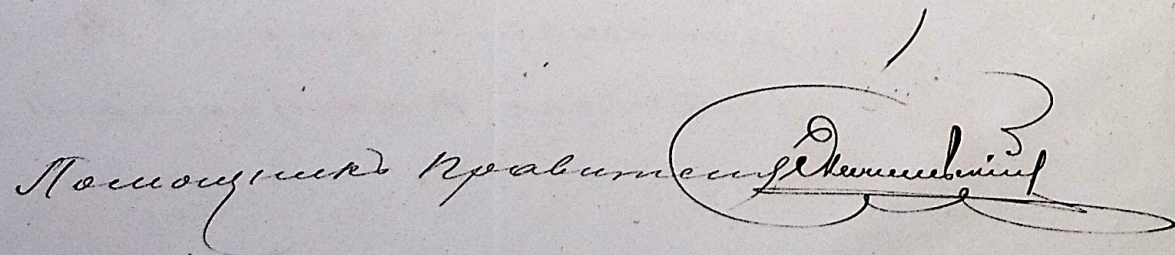 Помощникъ Правителя